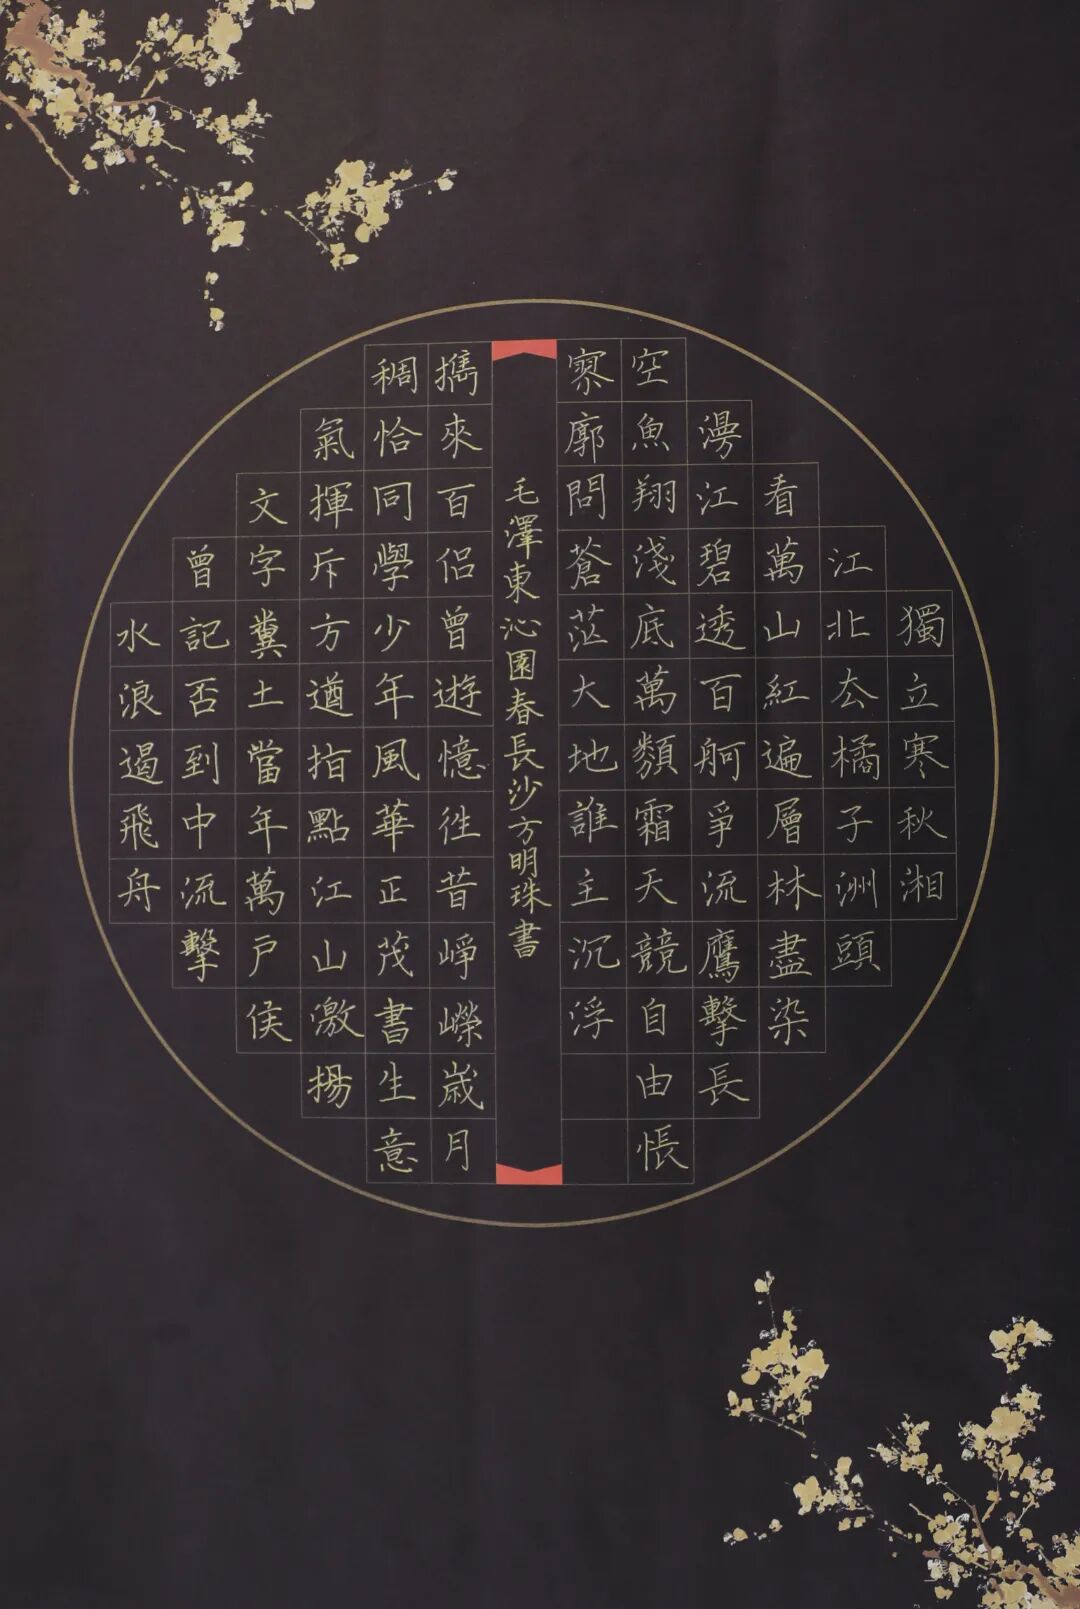 獨立寒秋湘
江北去橘子洲頭
看萬山紅遍層林盡染
漫江碧透百舸爭流鷹擊長
空魚翔淺底萬類霜天競自由悵
寥廓問蒼茫大地誰主沉浮
毛澤東沁園春長沙方明珠書
攜來百侶曾遊憶往昔崢嶸歲月
稠恰同學少年風華正茂書生意
氣揮斥方遒指點江山激揚
文字糞土當年萬戶侯
曾記否到中流擊
水浪遏飛舟